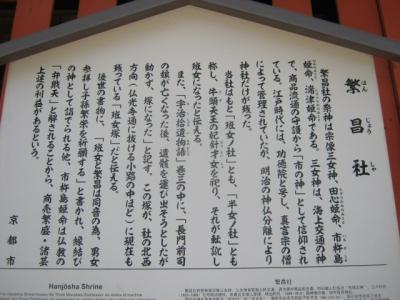 繁昌社
はん じょう しゃ
繁昌社の祭神は宗像三女神、田心姫命、市杵島
姫命、湍津姫命である。三女神は、海上交通の神
で、商品流通の守護から「市の神」として信仰され
ている。江戸時代には、功徳院と号し、真言宗の僧
によって管理されていたが、明治の神仏分離により
神社だけが残った。
当社はもと「班女ノ社」とも、「半女ノ社」とも
称し、牛頭天王の妃針才女を祀り、それが転訛し
班女になったと伝える。
また、「宇治拾遺物語」巻三の中に、「長門前司
の娘が亡くなった後、遺骸を運び出そうとしたが
動かず、塚になった」と記す、この塚が、社の北西
方向(仏光寺通に抜ける小路の中ほど)に現在も
残っている「班女塚」だと伝える。
後世の書物に、「班女と繁昌は同音の為、男女
参拝し子孫繁栄を祈願する」と書かれ、縁結び
の神として詣でられる他、市杵島姫命は仏教の
「弁財天」と解されることから、商売繁盛・諸芸
上達の利益があるという。
京都市
Hanjōsha Shrine
繁昌社